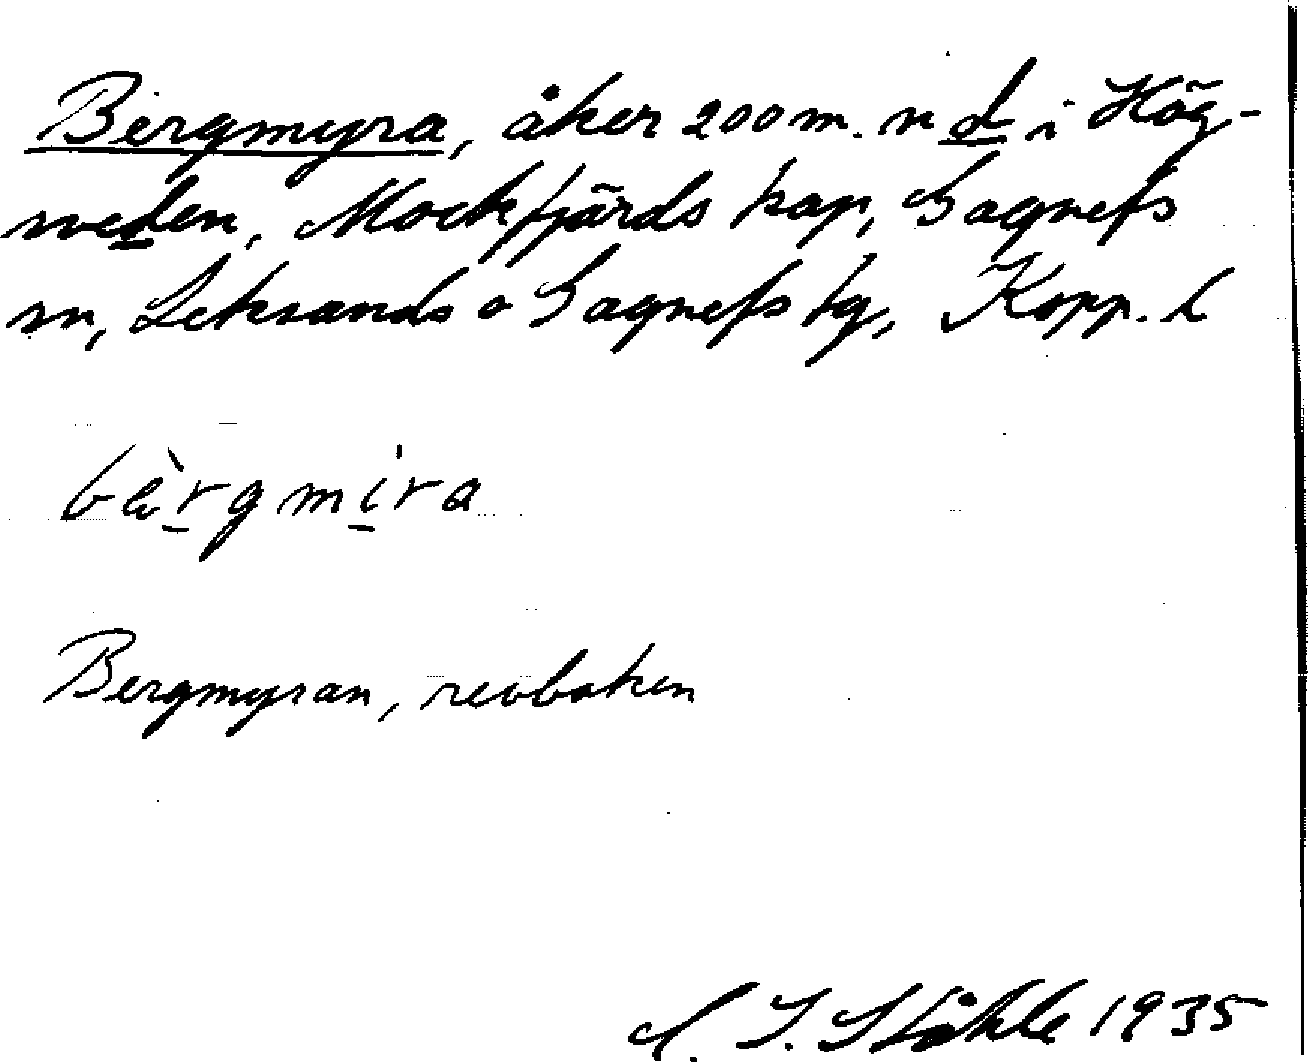 Bergmyra, åker 200 m. n d i Hög-
sveden, Mockfjärds kap, Gagnefs
sn, Leksands o Gagnefs tg, Kopp. l
bärgmira
Bergmyran, revboken
C. I. Ståhle 1935